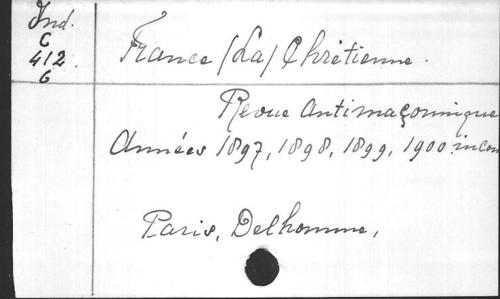 Ind.
C
412
6
France (La) Chrétienne.
Revue Antimaçonnique
Années 1897, 1898, 1899, 1900. incom
Paris, Delhomme,